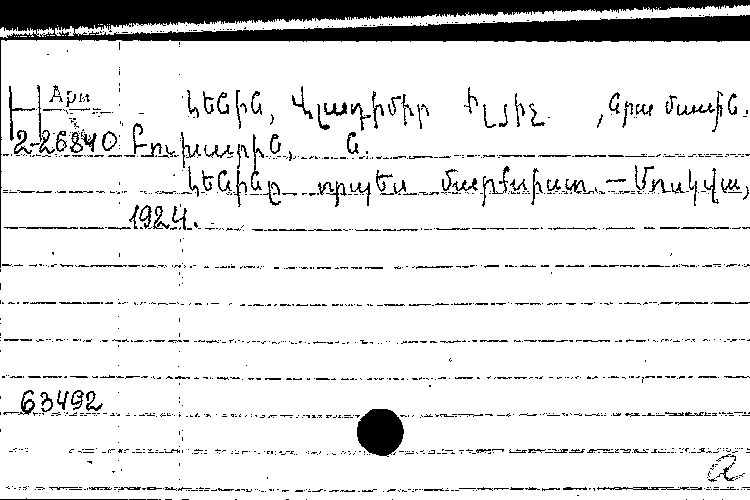 Արա
Լենին, Վլադիմիր Իլյիչ, նրա մասին.
2-26840 Բուխարին, Ն.
Լենինը որպես մարքսիստ. — Մոսկվա,
1924.
63492
a